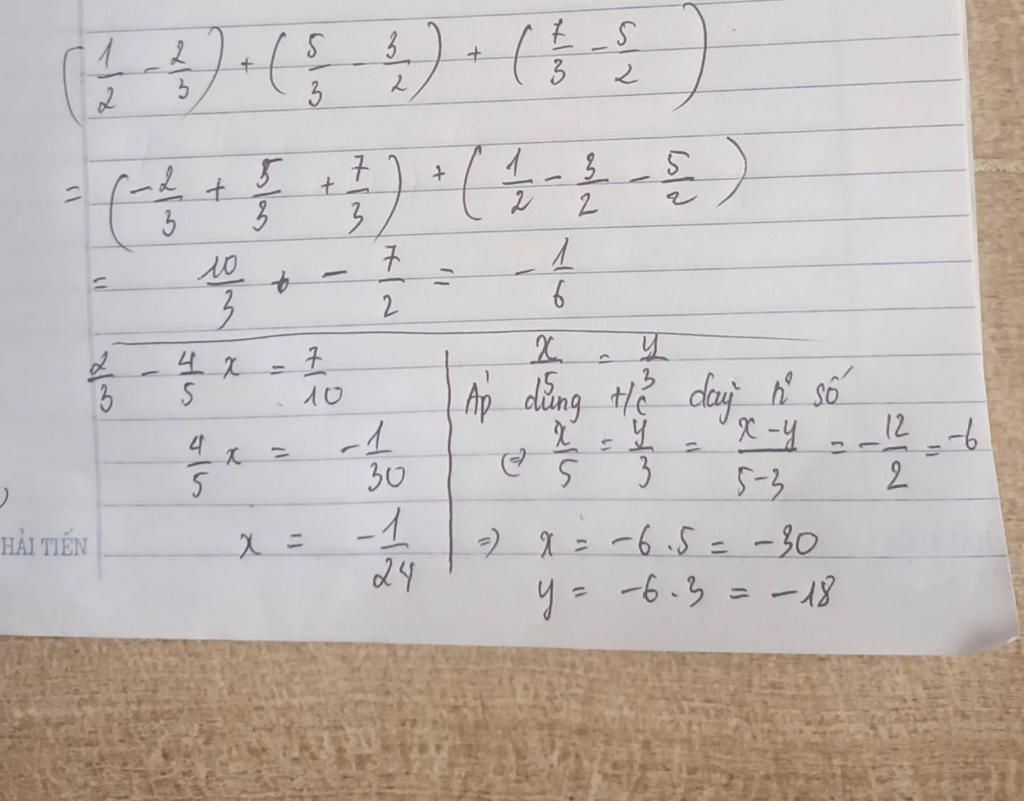 (1/2 - 2/3) + (5/3 - 3/2) + (7/3 - 5/2)
= (-2/3 + 5/3 + 7/3) + (1/2 - 3/2 - 5/2)
= 10/3 + - 7/2 = - 1/6
2/3 - 4/5 x = 7/10
4/5 x = - 1/30
x = - 1/24
x/5 = y/3
Áp dũng t/c dãy tỉ số
(=) x/5 = y/3 = x-y/5-3 = - 12/2 = -6
=) x = -6.5 = -30
y = -6.3 = -18
HẢI TIẾN